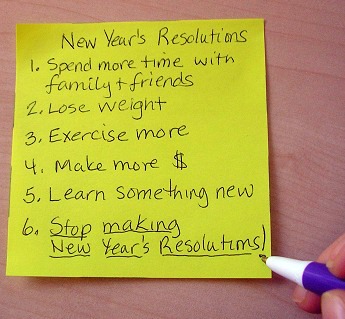 New Year's Resolutions
1. Spend more time with
family + friends
2. Lose weight
3. Exercise more
4. Make more $
5. Learn something new
6. Stop making
New Year's Resolutions!